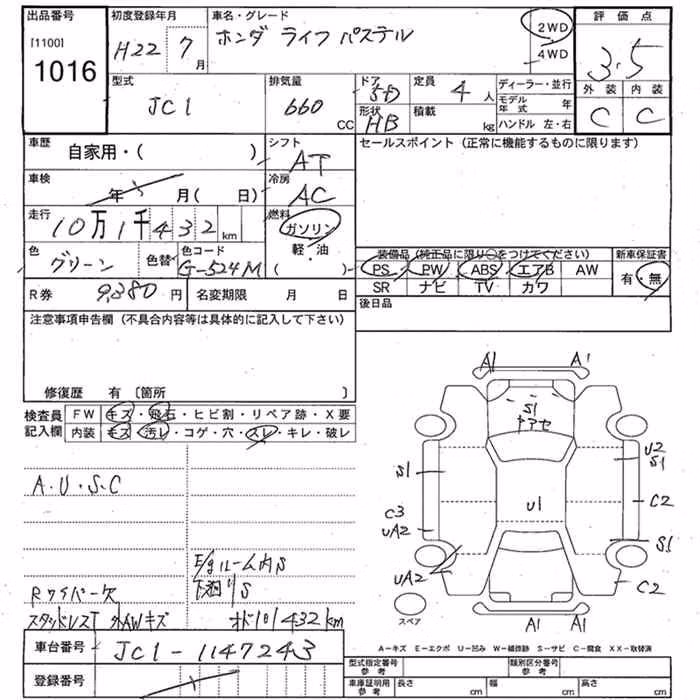 出品番号 初度登録年月 車名・グレード 評価点
[1100] 1016 H22 7月 ホンダ ライフ パステル 2WD 4WD 3.5
型式 排気量 ドア 定員 ディーラー・並行 外装 内装
JC1 660 CC 5D 4人 モデル年式 年 C C
形状 HB 積載 kg ハンドル 左・右
車歴 シフト セールスポイント (正常に機能するものに限ります)
自家用・( ) AT
車検 年 月( 日) 冷房 AC
走行 10万1千432km 燃料 ガソリン
軽・油
色 グリーン 色替 色コード G-524M
装備品 (純正品に限り○をつけてください) 新車保証書
PS PW ABS エアB AW 有・無
SR ナビ TV カワ
R券 9,380円 名変期限 月 日 後日品
注意事項申告欄 (不具合内容等は具体的に記入して下さい)
修復歴 有 〔箇所 〕
検査員 FW キズ・飛石・ヒビ割・リペア跡・X要
記入欄 内装 キズ・汚レ・コゲ・穴・スレ・キレ・破レ
A1 A1
S1
ヤアセ
U2
S1 S1
A・U・S・C
C3 U1 C2
UA2
S1
E/gルーム内S
下廻りS
UA2 C2
Rワイパー欠
スタッドレスT 外AWキズ オド101432km
スペア A1 A1
A-キズ E-エクボ U-凹ミ W-補修跡 S-サビ C-腐食 XX-取替済
車台番号 JC1-1147243
登録番号
型式指定番号 参考 類別区分番号 参考
車庫証明用 参考 長さ cm 幅 cm 高さ cm